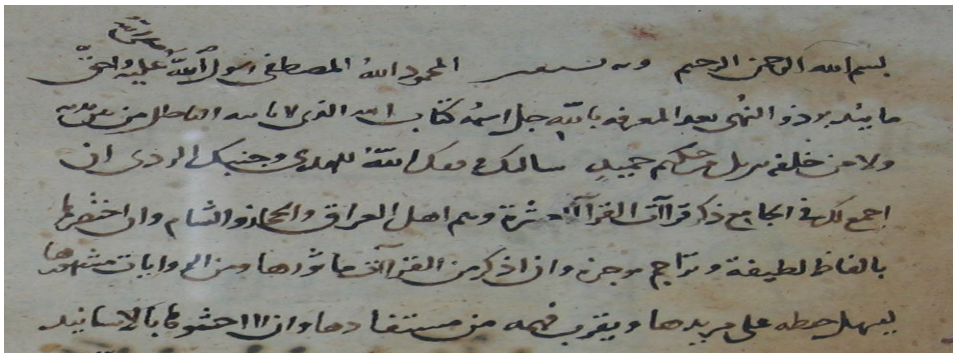 صلى الله
بسم الله الرحمن الرحيم وبه المحمود الله المصطفى رسول الله عليه واحق
ما ذو النهى بعد المعرفه بالله جل اسمه كتاب الله الذى لا ياتيه الباطل من بين يديه
ولا من خلفه تنزيل من حكيم حميد سالت وفقك الله للهدى وجنبك الردى ان
اجمع لك في الجامع ذا قراآت القرآ العشرة وهم اهل العراق والحجاز والشام وان اختصرها
بالفاظ لطيفة وتراجم موجزة وان اذكر من القراآت ماثورها ومن الروايات مشهورها
ليسهل حفظه على مريدها ويقرب فهمه من مستفادها وان لا احشوها بالاسانيد